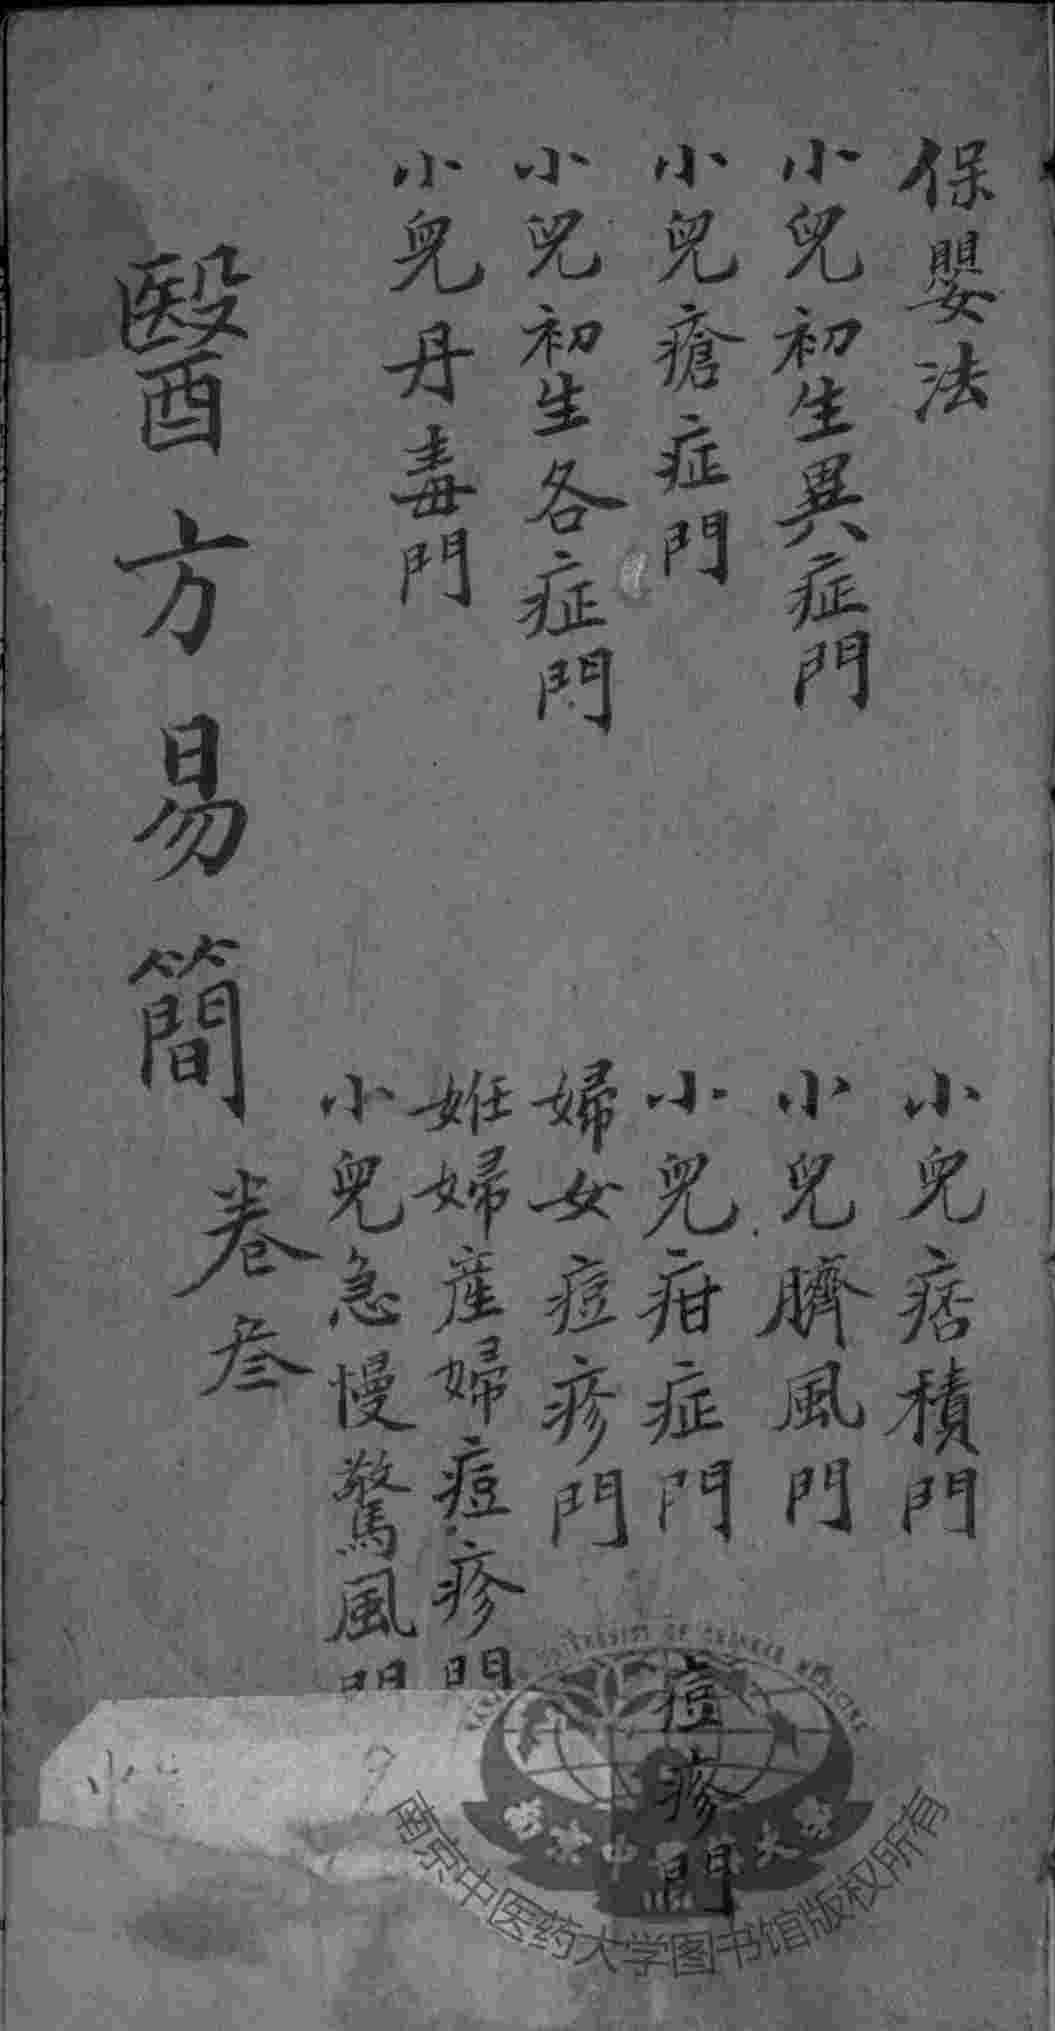 保嬰法
小兒初生異症門
小兒瘡症門
小兒初生各症門
小兒丹毒門
小兒痞積門
小兒臍風門
小兒疳症門
痘疹門
婦女痘疹門
姙婦産婦痘疹門
小兒急慢驚風門
醫方易簡
卷叁
南京中医药大学图书馆版权所有